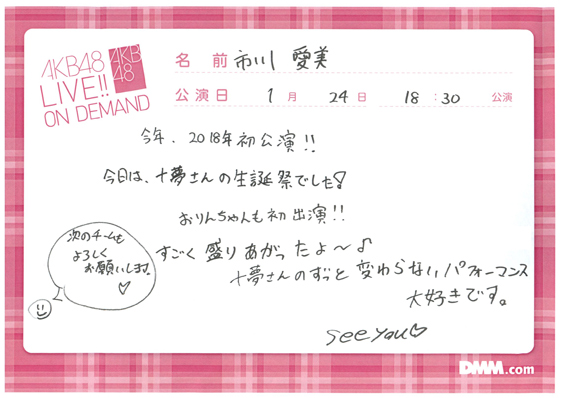 AKB48
LIVE!!
ON DEMAND
AKB
48
名 前 市川 愛美
公演日 1月 24日 18:30 公演
今年、2018年初公演!!
今日は、十夢さんの生誕祭でした!
おりんちゃんも初出演!!
すごく盛りあがったよ〜♪
十夢さんのずっと変わらないパフォーマンス
大好きです。
see you♡
次のチームも
よろしく
お願いします。
♡
DMM.com